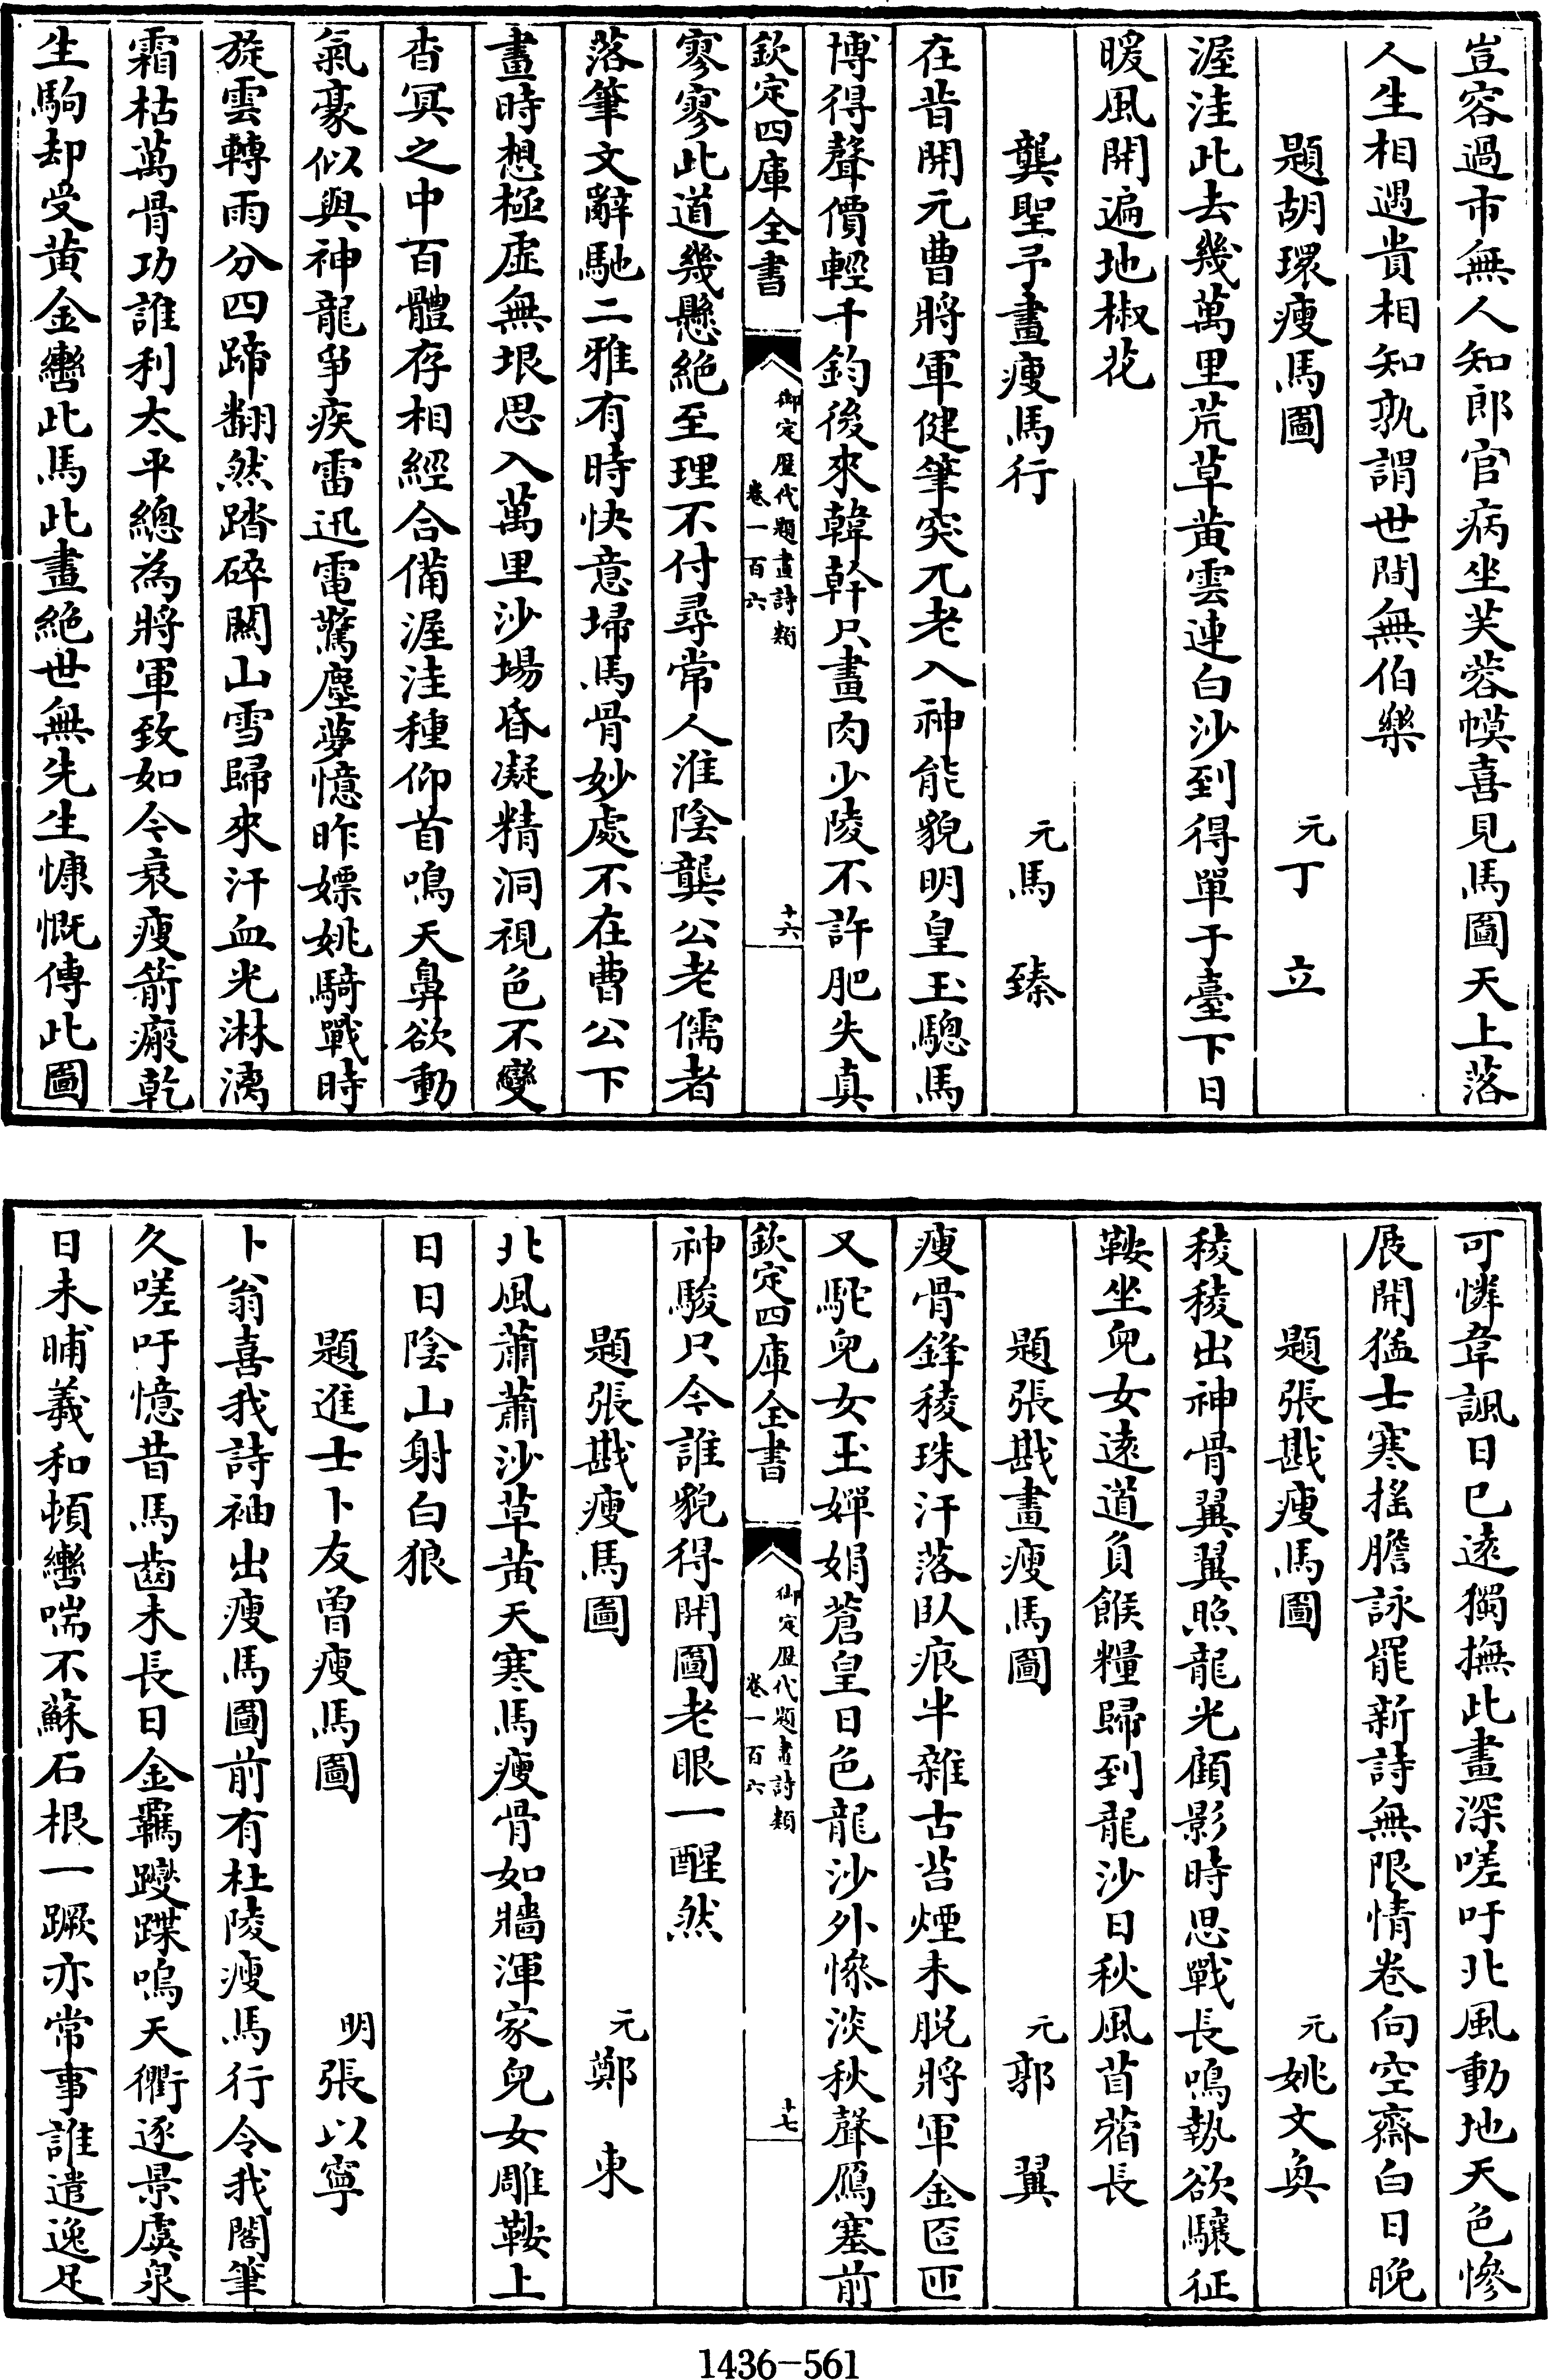 豈容過市無人知郎官病坐芙蓉幙喜見馬圖天上落
人生相遇貴相知孰謂世間無伯樂
題胡瓌瘦馬圖 元丁立
渥洼此去幾萬里荒草黄雲連白沙到得單于臺下日
暖風開遍地椒花
龔聖予畫瘦馬行 元馬臻
在昔開元曹將軍健筆突兀老入神能貌明皇玉驄馬
博得聲價輕千鈞後來韓幹只畫肉少陵不許肥失真
欽定四庫全書 御定歴代題畫詩類 卷一百六 十六
寥寥此道幾懸絶至理不付尋常人淮陰龔公老儒者
落筆文辭馳二雅有時快意埽馬骨妙處不在曹公下
畫時想極虛無垠思入萬里沙場昏凝精洞視色不變
杳冥之中百體存相經合備渥洼種仰首鳴天鼻欲動
氣豪似與神龍爭疾雷迅電驚塵夢憶昨嫖姚騎戰時
旋雲轉雨分四蹄翻然踏碎關山雪歸來汗血光淋漓
霜枯萬骨功誰利太平總為將軍致如今衰瘦箭瘢乾
生駒却受黄金轡此馬此畫絶世無先生慷慨傳此圖
可憐韋諷日已遠獨撫此畫深嗟吁北風動地天色慘
展開猛士寒搖膽詠罷新詩無限情卷向空齋白日晚
題張戡瘦馬圖 元姚文奐
稜稜出神骨翼翼照龍光顧影時思戰長鳴勢欲驤征
鞍坐兒女遠道負餱糧歸到龍沙日秋風苜蓿長
題張戡畫瘦馬圖 元郭翼
瘦骨鋒稜珠汗落臥痕半雜古苔煙未脱將軍金匼匝
又馱兒女玉嬋娟蒼皇日色龍沙外慘淡秋聲鴈塞前
欽定四庫全書 御定歴代題畫詩類 卷一百六 十七
神駿只今誰貌得開圖老眼一醒然
題張戡瘦馬圖 元鄭東
北風蕭蕭沙草黄天寒馬瘦骨如牆渾家兒女雕鞍上
日日陰山射白狼
題進士卜友曾瘦馬圖 明張以寧
卜翁喜我詩袖出瘦馬圖前有杜陵瘦馬行令我閣筆
久嗟吁憶昔馬齒未長日金羈躞蹀鳴天衢逐景虞泉
日未晡羲和頓轡喘不蘇石根一蹶亦常事誰遣逸足
1436-561